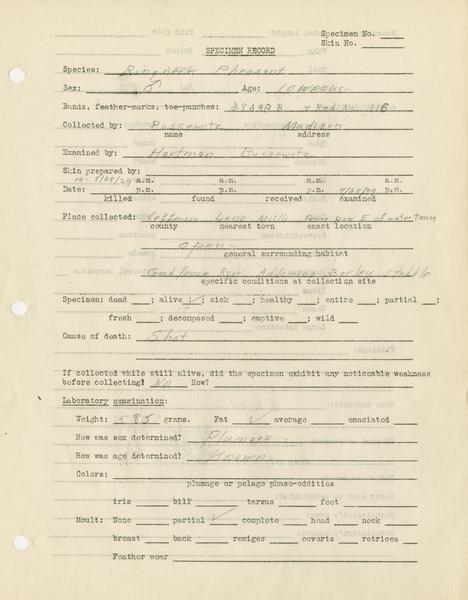 Specimen No.
Skin No.
SPECIMEN RECORD
Species: Ringneck Pheasant
Sex: ♂ Age: 10 weeks
Bands, feather-marks, toe-punches: 28492 B & Red No. 116
Collected by: Bussewitz Madison
name address
Examined by: Hartman Bussewitz
Skin prepared by:
a.m. a.m. a.m. a.m.
Date: p.m. p.m. p.m. p.m.
killed found received examined
Place collected: Jefferson Lake Mills Fence Row E of water tany
county nearest town exact location
open
general surrounding habitat
Good fence Row Adjoining Barley stubble
specific conditions at collection site
Specimen: dead ; alive ✓; sick ; healthy ; entire ; partial ;
fresh ; decomposed ; captive ; wild
Cause of death: Shot
If collected while still alive, did the specimen exhibit any noticeable weakness
before collecting? No How?
Laboratory examination:
Weight: 585 grams. Fat ✓ average emaciated
How was sex determined? Plumage
How was age determined? Known
Colors:
plumage or pelage phase-oddities
iris bill tarsus foot
Moult: None partial ✓ complete head neck
breast back remiges coverts retrices
Feather wear